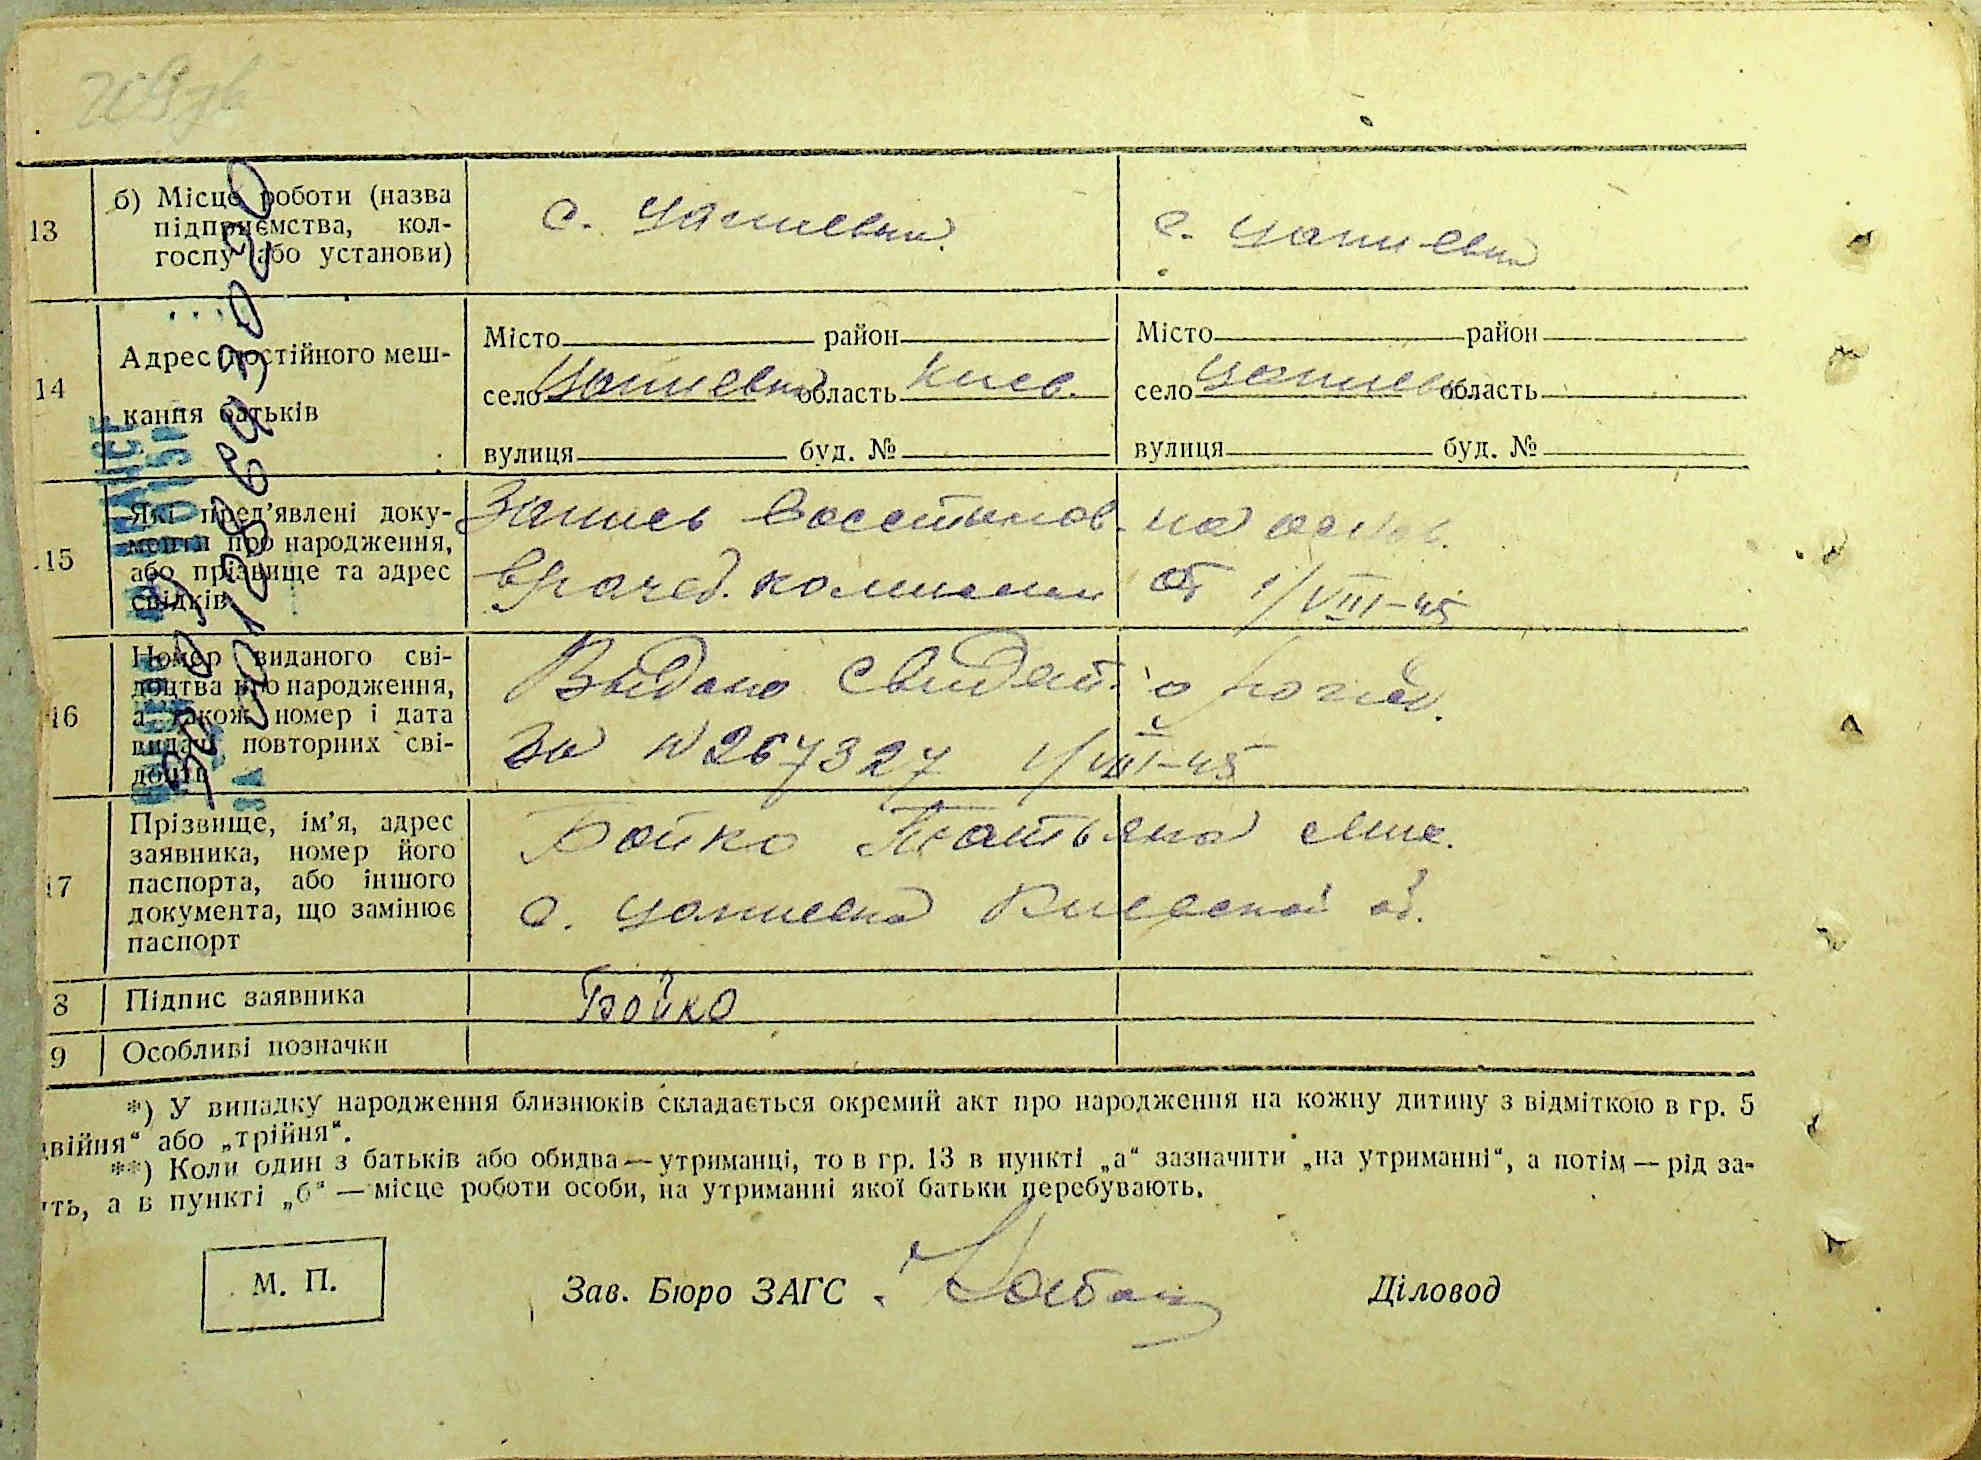 13
б) Місце роботи (назва
підприємства, кол-
госпу або установи)
с.
с.
14
Адрес постійного меш-
кання батьків
Місто район
село область Киев.
вулиця буд. №
Місто район
село область
вулиця буд. №
15
Які пред’явлені доку-
менти про народження,
або прізвище та адрес
свідків
Запись восстанов. на основ.
врачеб. комиссии от 1/VIII-45
16
Номер виданого сві-
доцтва про народження,
а також номер і дата
видачі повторних сві-
доцтв
Выдано свидет. о рожд.
за N 267327 1/VIII-45
17
Прізвище, ім’я, адрес
заявника, номер його
паспорта, або іншого
документа, що замінює
паспорт
Бойко Татьяна
с. Киевской об.
8
Підпис заявника
Бойко
9
Особливі позначки
*) У випадку народження близнюків складається окремий акт про народження на кожну дитину з відміткою в гр. 5
двійня“ або „трійня“.
**) Коли один з батьків або обидва — утриманці, то в гр. 13 в пункті „а“ зазначити „на утриманні“, а потім — рід за-
ять, а в пункті „б“ — місце роботи особи, на утриманні якої батьки перебувають.
М. П.
Зав. Бюро ЗАГС
Діловод